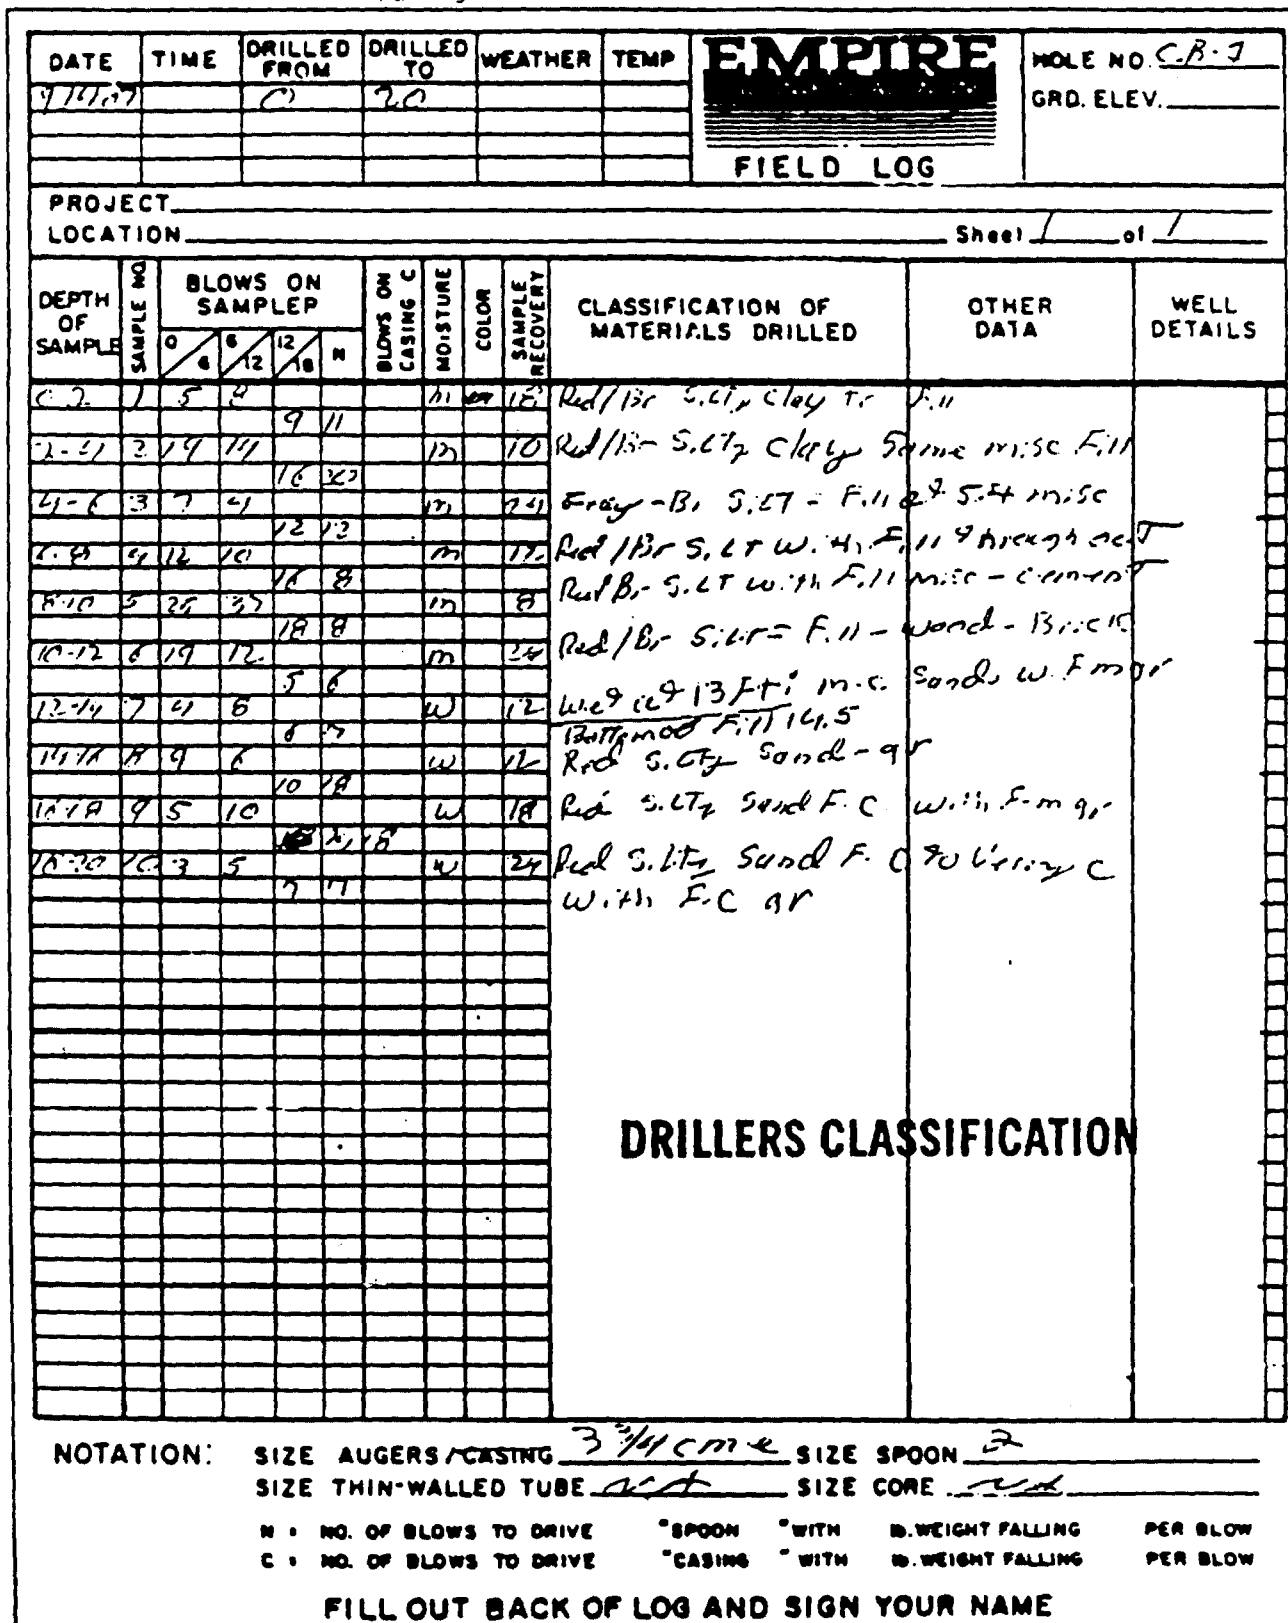 DATE TIME DRILLED FROM DRILLED TO WEATHER TEMP
0 20
EMPIRE
FIELD LOG
HOLE NO.
GRD. ELEV.
PROJECT
LOCATION
Sheet 1 of 1
DEPTH OF SAMPLE
SAMPLE NO
BLOWS ON SAMPLER
0/6 6/12 12/18 N
BLOWS ON CASING C
MOISTURE
COLOR
SAMPLE RECOVERY
CLASSIFICATION OF MATERIALS DRILLED
OTHER DATA
WELL DETAILS
0-2 1 5 8 m 18 Red/Br Silty Clay Tr Fill
9 11
2-4 2 19 14 m 10 Red/Br Silty Clay Some misc Fill
16
4-6 3 7 4 m 24 Gray-Br Silt - Fill at 5.4 misc
12
6-8 4 12 10 m Red/Br Silt With Fill throughout
16 8
8-10 5 m 8 Red Br Silt with Fill misc - cement
18 8
10-12 6 19 12 m 24 Red/Br Silt = Fill - wood - Brick
5 6
12-14 7 4 6 w 12 Wet at 13 Ft; m-c Sands w. F m gr
Bottom of Fill 14.5
14-16 8 9 6 w 12 Red Silty Sand - gr
10 18
16-18 9 5 10 w 18 Red Silty Sand F.C with F-m gr
18
18-20 10 3 5 w 24 Red Silty Sand F. C to Very C
7 7 With F.C gr
DRILLERS CLASSIFICATION
NOTATION: SIZE AUGERS/CASING 3 3/4 cme SIZE SPOON 2
SIZE THIN-WALLED TUBE NA SIZE CORE NA
N = NO. OF BLOWS TO DRIVE "SPOON "WITH lb. WEIGHT FALLING PER BLOW
C = NO. OF BLOWS TO DRIVE "CASING "WITH lb. WEIGHT FALLING PER BLOW
FILL OUT BACK OF LOG AND SIGN YOUR NAME